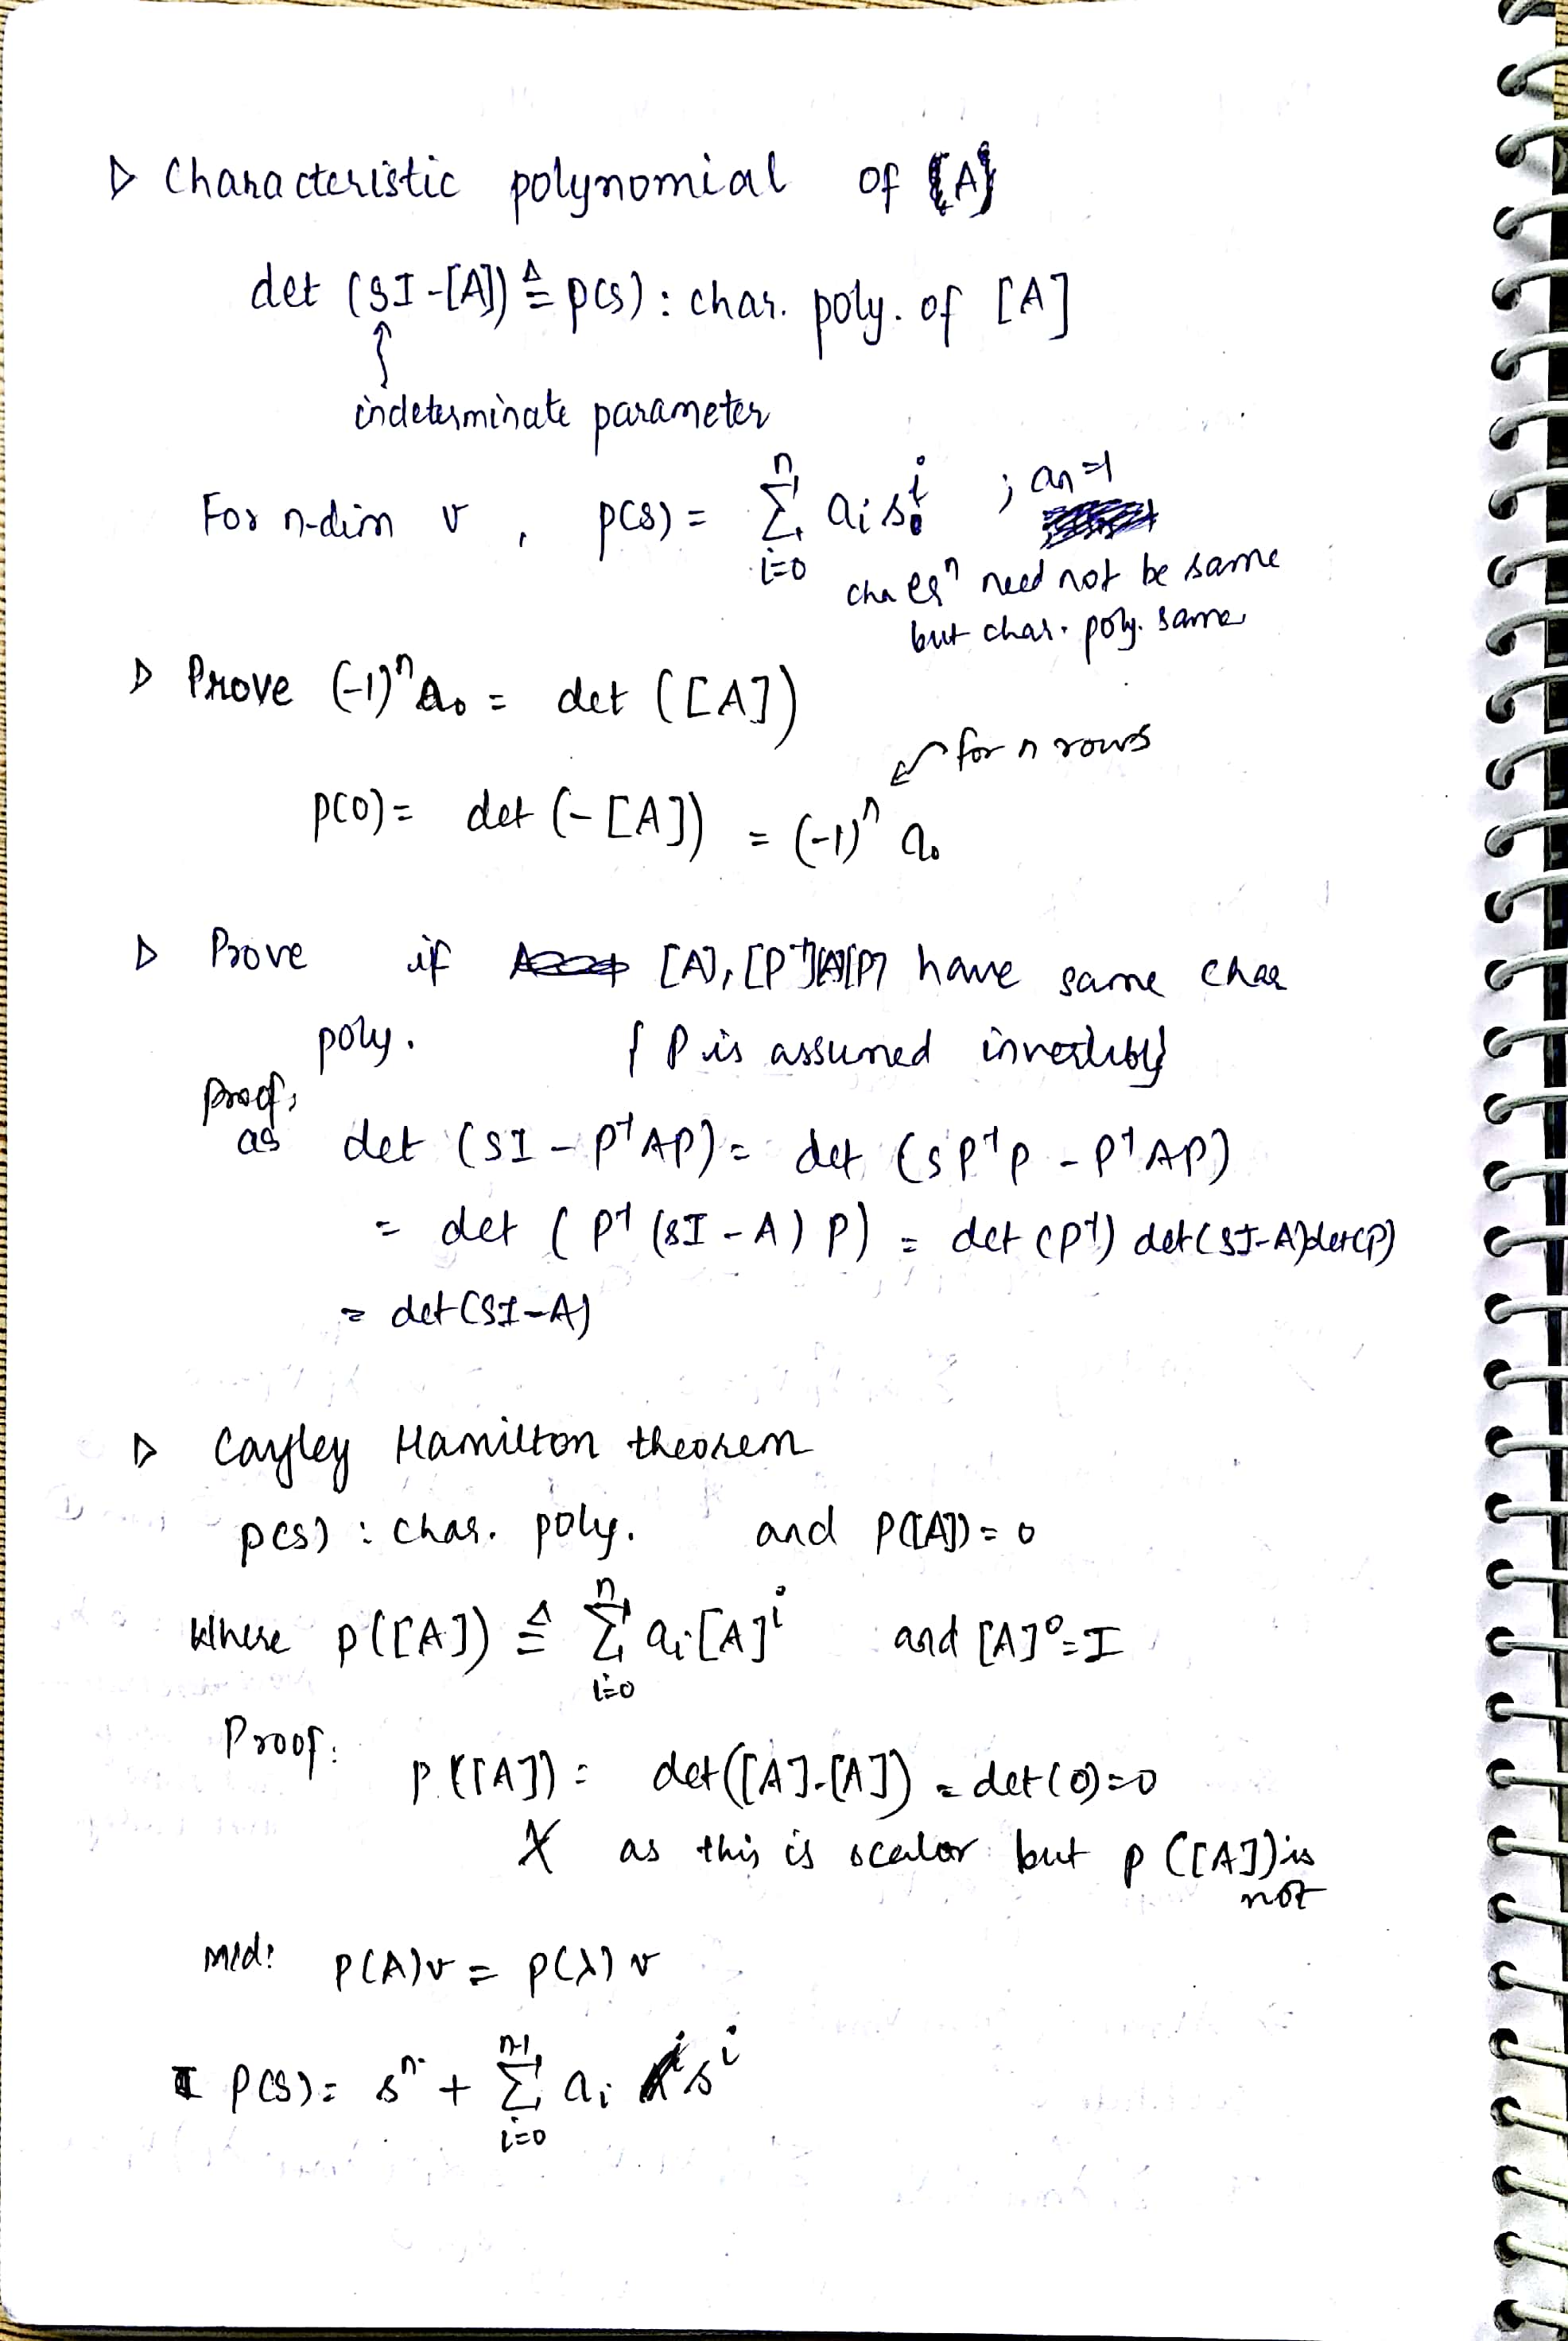 ▷ Characteristic polynomial of {A}
det (SI-[A]) ≜ p(s) : char. poly. of [A]
↑
indeterminate parameter
For n-dim V , p(s) = Σ_{i=0}^{n} a_i s^i ; a_n=1
cha eqⁿ need not be same
but char. poly. same
▷ Prove (-1)ⁿ a₀ = det ([A])
↙ for n rows
p(0) = det (-[A]) = (-1)ⁿ a₀
▷ Prove if [A], [P⁻¹][A][P] have same char
poly. { P is assumed invertible}
Proof:
as det (SI - P⁻¹AP) = det (sP⁻¹P - P⁻¹AP)
= det (P⁻¹ (sI - A) P) = det (P⁻¹) det(SI-A)det(P)
= det(SI-A)
▷ Cayley Hamilton theorem
p(s) : char. poly. and P([A]) = 0
Where p([A]) ≜ Σ_{i=0}^{n} a_i [A]^i and [A]⁰=I
Proof: p([A]) = det([A]-[A]) = det(0)=0
X as this is scalar but p([A]) is
not
Mtd: P(A)v = p(λ)v
P(s) = sⁿ + Σ_{i=0}^{n-1} a_i s^i